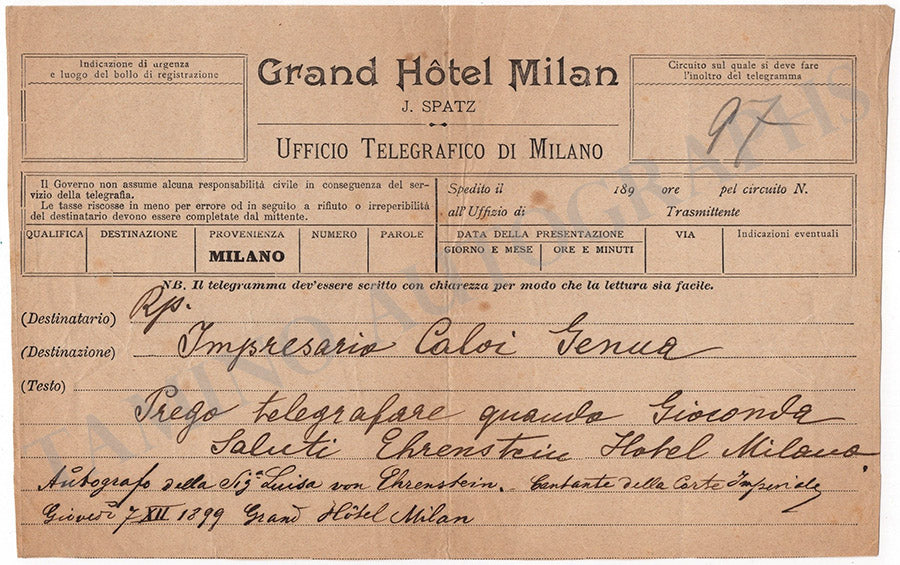 Indicazione di urgenza
e luogo del bollo di registrazione
Grand Hôtel Milan
J. SPATZ
UFFICIO TELEGRAFICO DI MILANO
Circuito sul quale si deve fare
l'inoltro del telegramma
97
Il Governo non assume alcuna responsabilità civile in conseguenza del ser-
vizio della telegrafia.
Le tasse riscosse in meno per errore od in seguito a rifiuto o irreperibilità
del destinatario devono essere completate dal mittente.
Spedito il 189 ore pel circuito N.
all'Uffizio di Trasmittente
QUALIFICA DESTINAZIONE PROVENIENZA NUMERO PAROLE DATA DELLA PRESENTAZIONE VIA Indicazioni eventuali
MILANO GIORNO E MESE ORE E MINUTI
NB. Il telegramma dev'essere scritto con chiarezza per modo che la lettura sia facile.
(Destinatario) Rp.
(Destinazione) Impresario Caloi Genua
(Testo)
Prego telegrafare quando Gioconda
Saluti Ehrenstein Hotel Milano
Autografo della Sig.ª Luisa von Ehrenstein. Cantante della Corte Imperiale
Giovedì 7 XII 1899 Grand Hôtel Milan
TAMINO AUTOGRAPHS